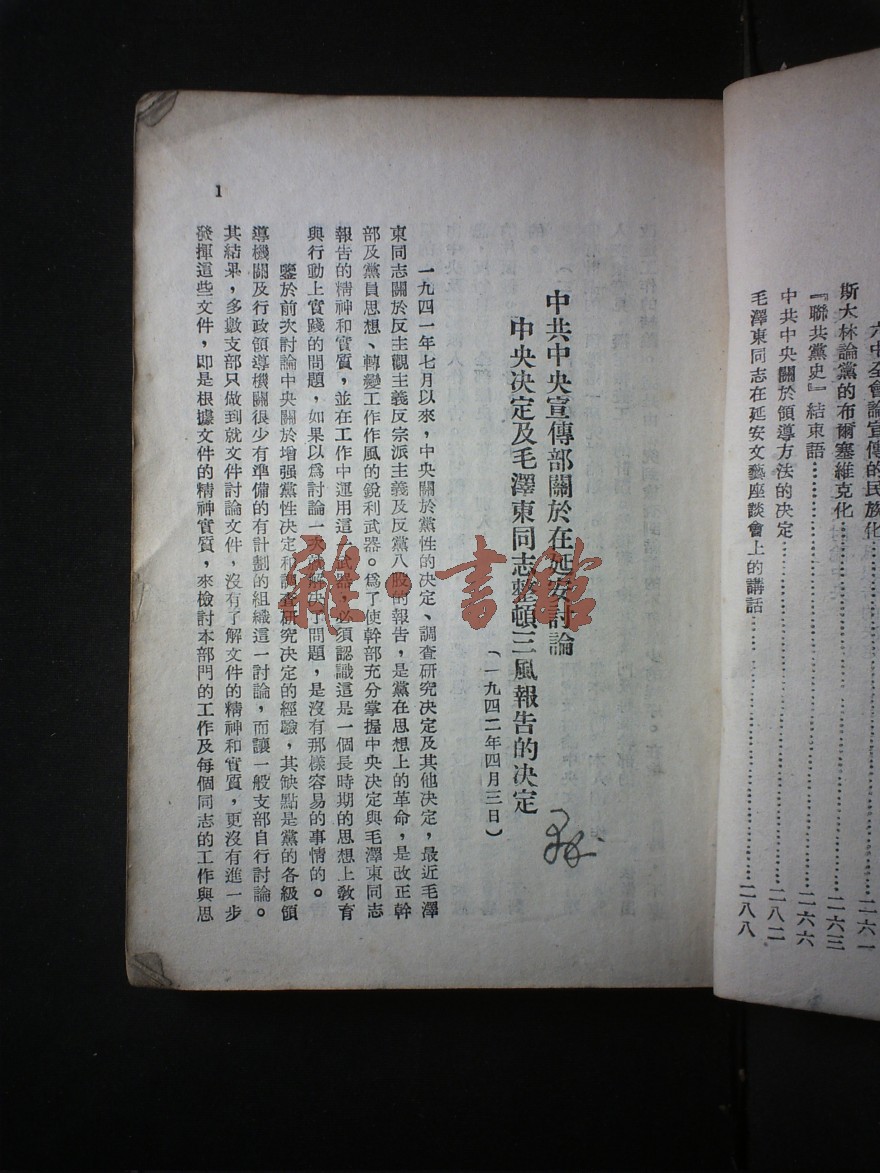 六中全會論宣傳的民族化……………二六一
斯大林論黨的布爾塞維克化……………二六三
『聯共黨史』結束語……………二六六
中共中央關於領導方法的決定……………二八二
毛澤東同志在延安文藝座談會上的講話……………二八八
1
中共中央宣傳部關於在延安討論
中央決定及毛澤東同志整頓三風報告的決定
(一九四二年四月三日)
一九四一年七月以來,中央關於黨性的決定、調查研究決定及其他決定,最近毛澤
東同志關於反主觀主義反宗派主義及反黨八股的報告,是黨在思想上的革命,是改正幹
部及黨員思想、轉變工作作風的銳利武器。爲了使幹部充分掌握中央決定與毛澤東同志
報告的精神和實質,並在工作中運用這一武器,必須認識這是一個長時期的思想上敎育
與行動上實踐的問題,如果以爲討論一次就解決了問題,是沒有那樣容易的事情的。
鑒於前次討論中央關於增强黨性決定和調查研究決定的經驗,其缺點是黨的各級領
導機關及行政領導機關很少有準備的有計劃的組織這一討論,而讓一般支部自行討論。
其結果,多數支部只做到就文件討論文件,沒有了解文件的精神和實質,更沒有進一步
發揮這些文件,即是根據文件的精神實質,來檢討本部門的工作及每個同志的工作與思
雜·書館